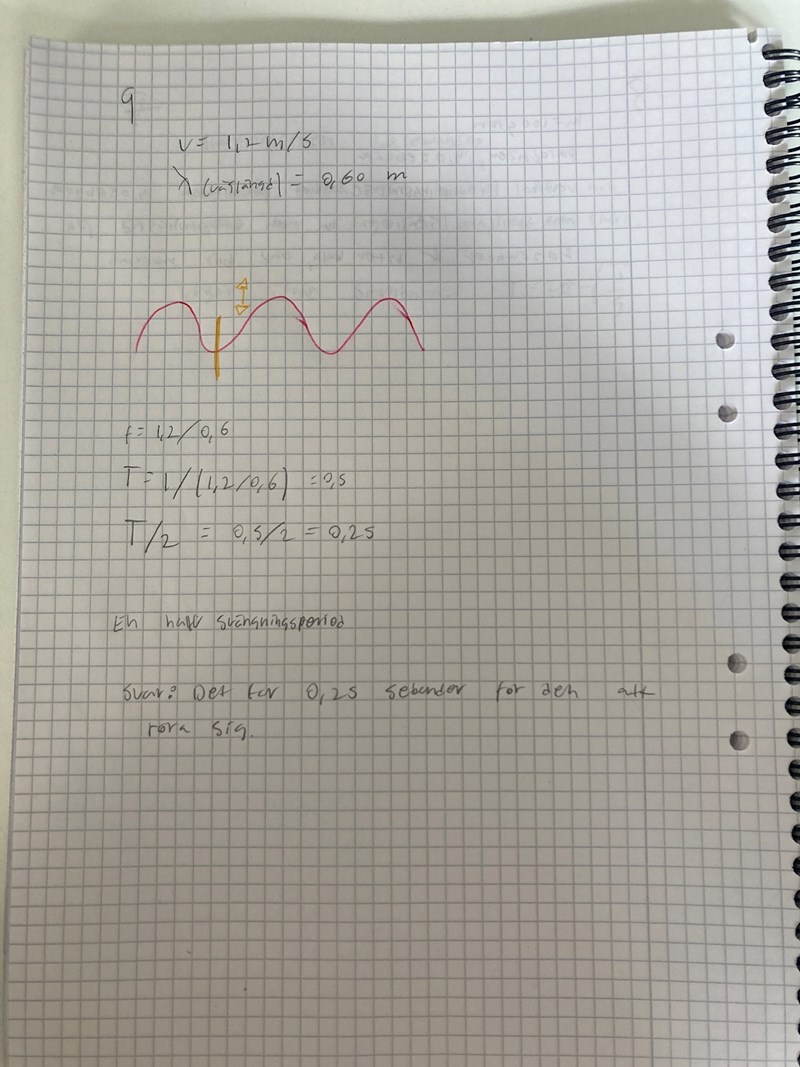 9
v= 1,2 m/s
λ (våglängd) = 0,60 m
f= 1,2/0,6
T= 1/(1,2/0,6) =0,5
T/2 = 0,5/2 = 0,25
En halv svängningsperiod
Svar: Det tar 0,25 sekunder för den att
röra sig.